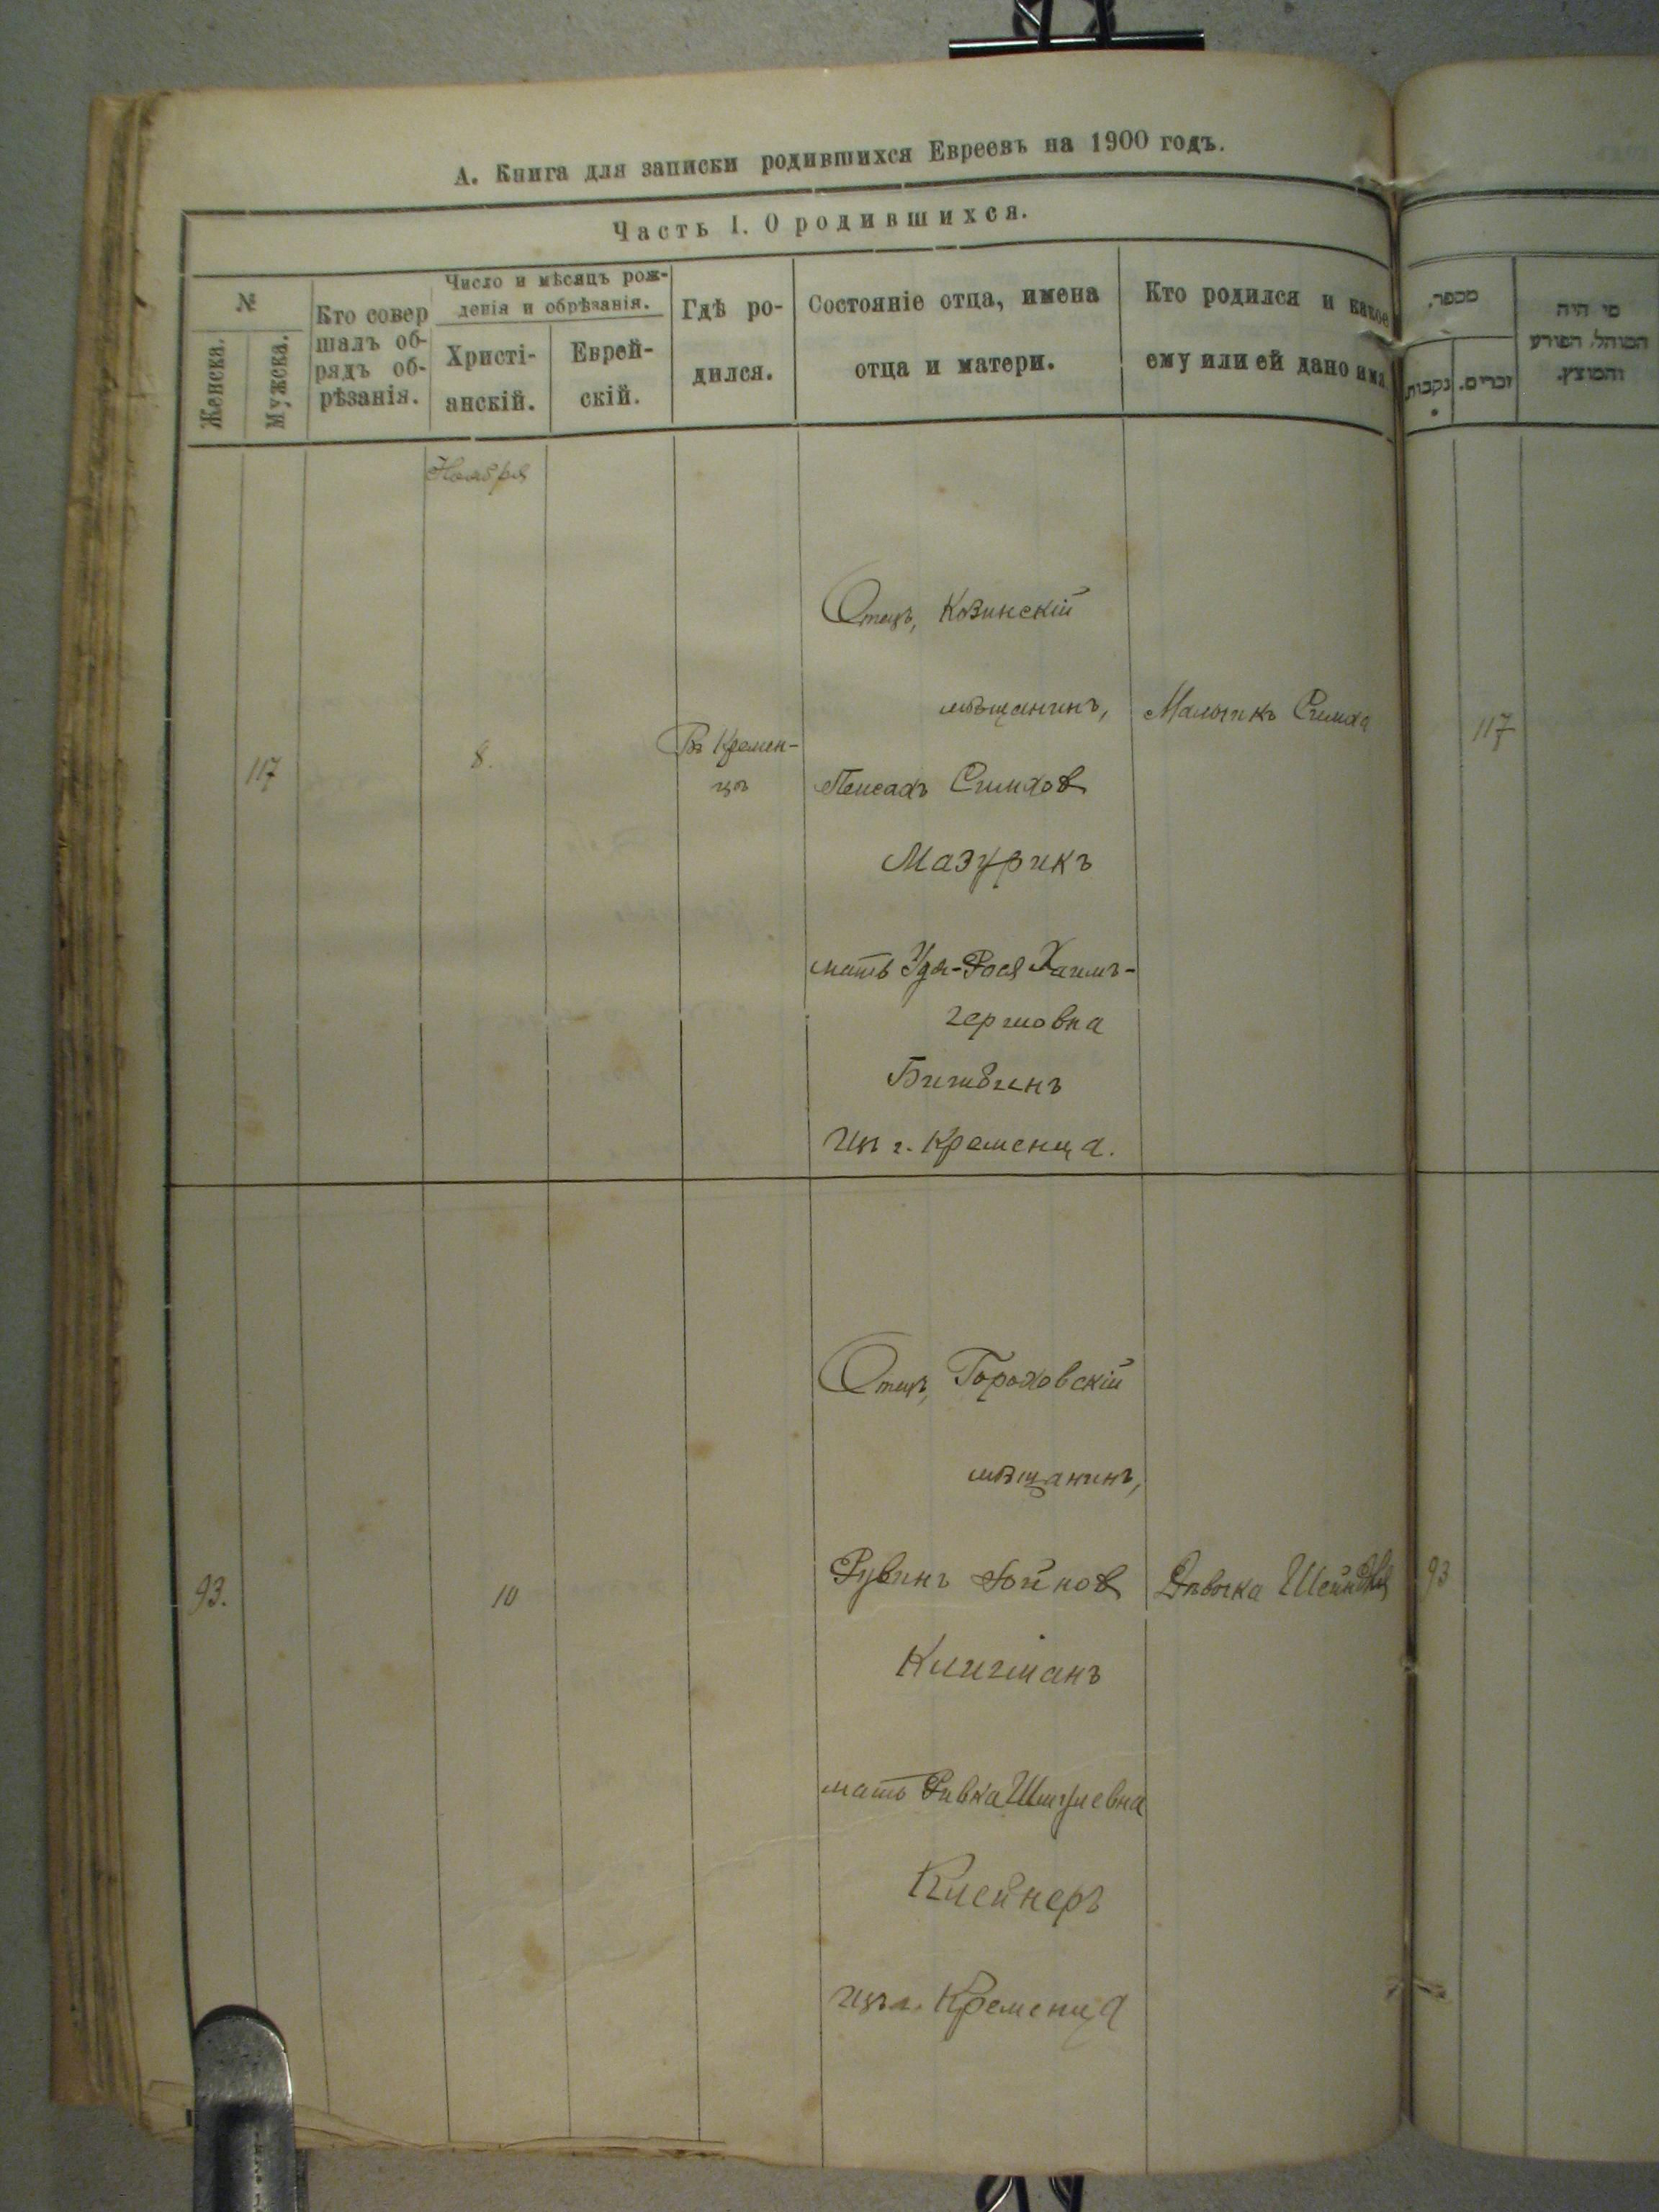 А. Книга для записки родившихся Евреевъ на 1900 годъ.
Часть I. О родившихся.
№
Женска.
Мужска.
Кто совер
шалъ об-
рядъ об-
рѣзанія.
Число и мѣсяцъ рож-
денія и обрѣзанія.
Христі-
анскій.
Еврей-
скій.
Гдѣ ро-
дился.
Состояніе отца, имена
отца и матери.
Кто родился и какое
ему или ей дано имя
מספר.
נקבות
זכרים.
מי היה
המוהל הפורע
והמוצץ.
Ноября
117
8.
Въ Кремен-
цѣ
Отецъ, Козинскій
мѣщанинъ,
Пейсахъ Симхов
Мазурикъ
мать Удя-Рося Хаимъ-
гершовна
из г. Кременца.
Мальчикъ Симха
117
93.
10
Отецъ, Гороховскій
мѣщанинъ,
Рувинъ Йойнов
Клигманъ
мать Ривка Шмулевна
Клейнеръ
из г. Кременца
Дѣвочка Шейндля
93